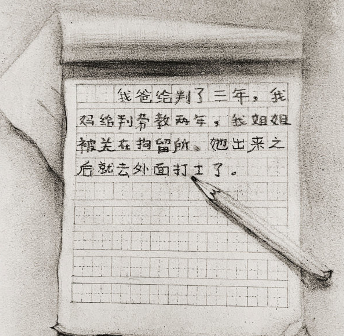 我爸给判了三年，我
妈给判劳教两年，我姐姐
被关在拘留所。她出来之
后就去外面打工了。